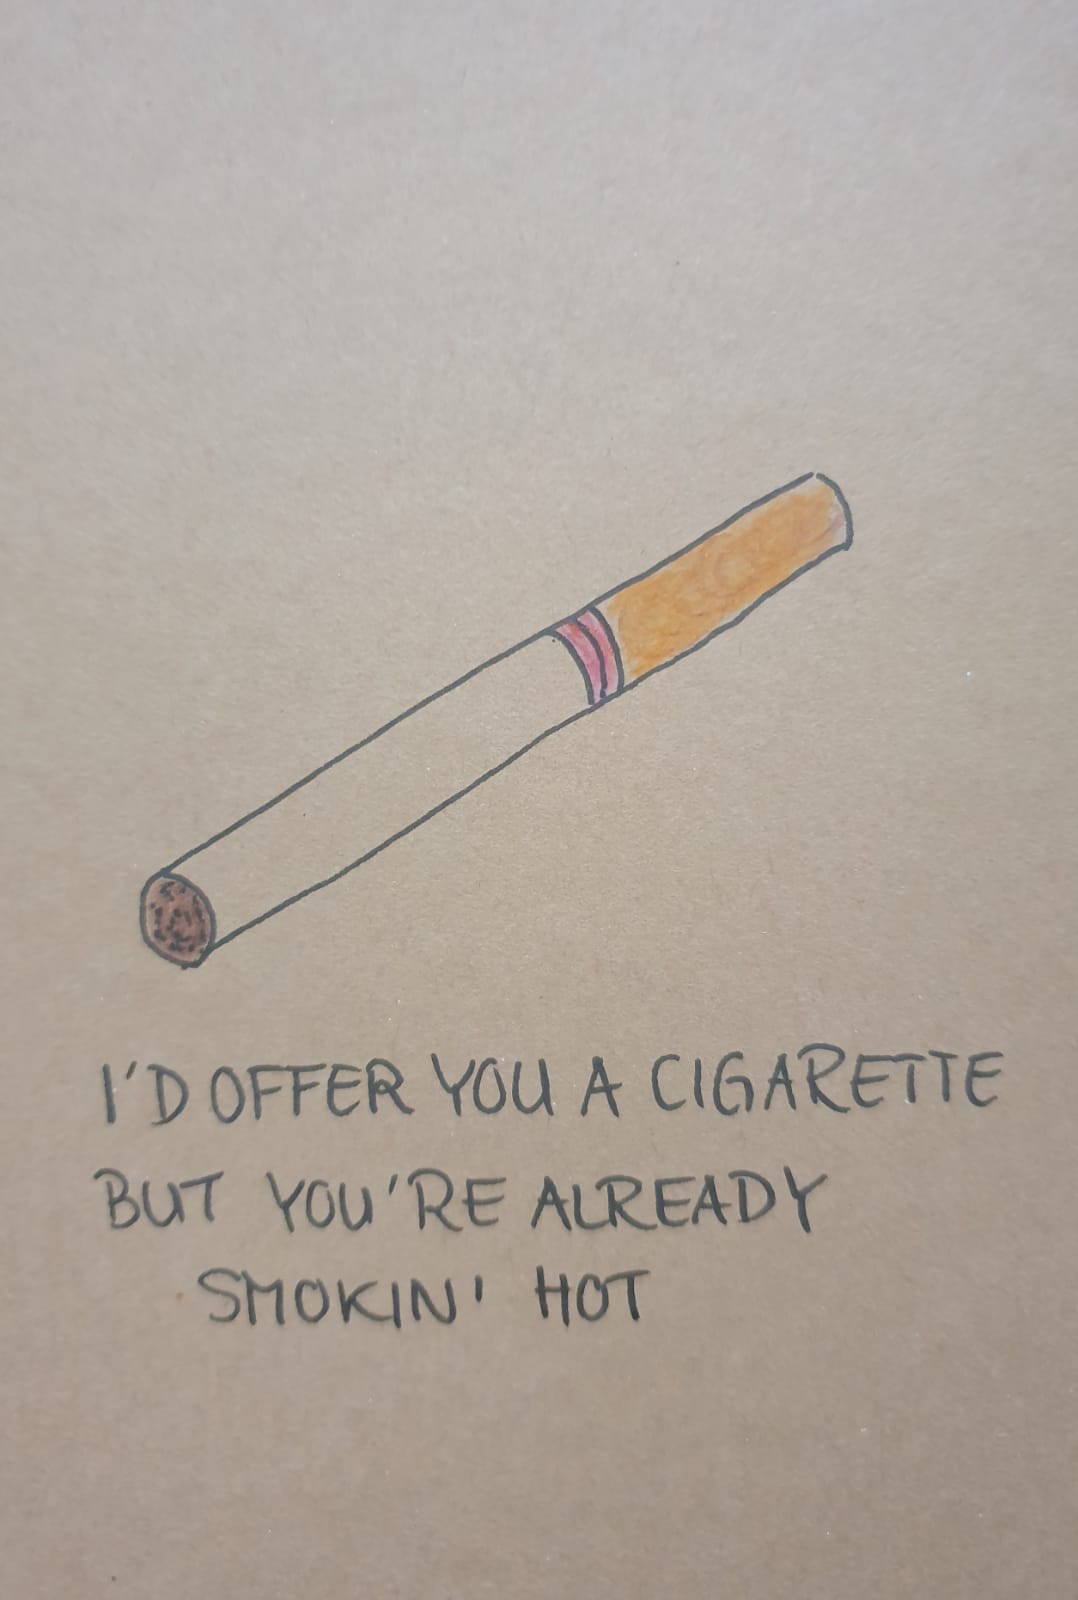 I'D OFFER YOU A CIGARETTE
BUT YOU'RE ALREADY
SMOKIN' HOT